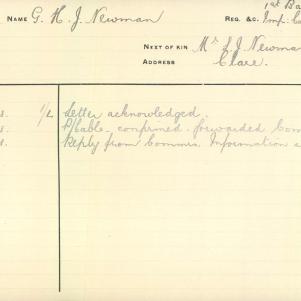 1st Ba
NAME G. H. J. Newman REG. &C. Imp. C
NEXT OF KIN Mr S J Newma
ADDRESS Clare.
8. 1/L Letter acknowledged.
8. P/Cable confirmed. forwarded Com
Reply from Commrs. Information a